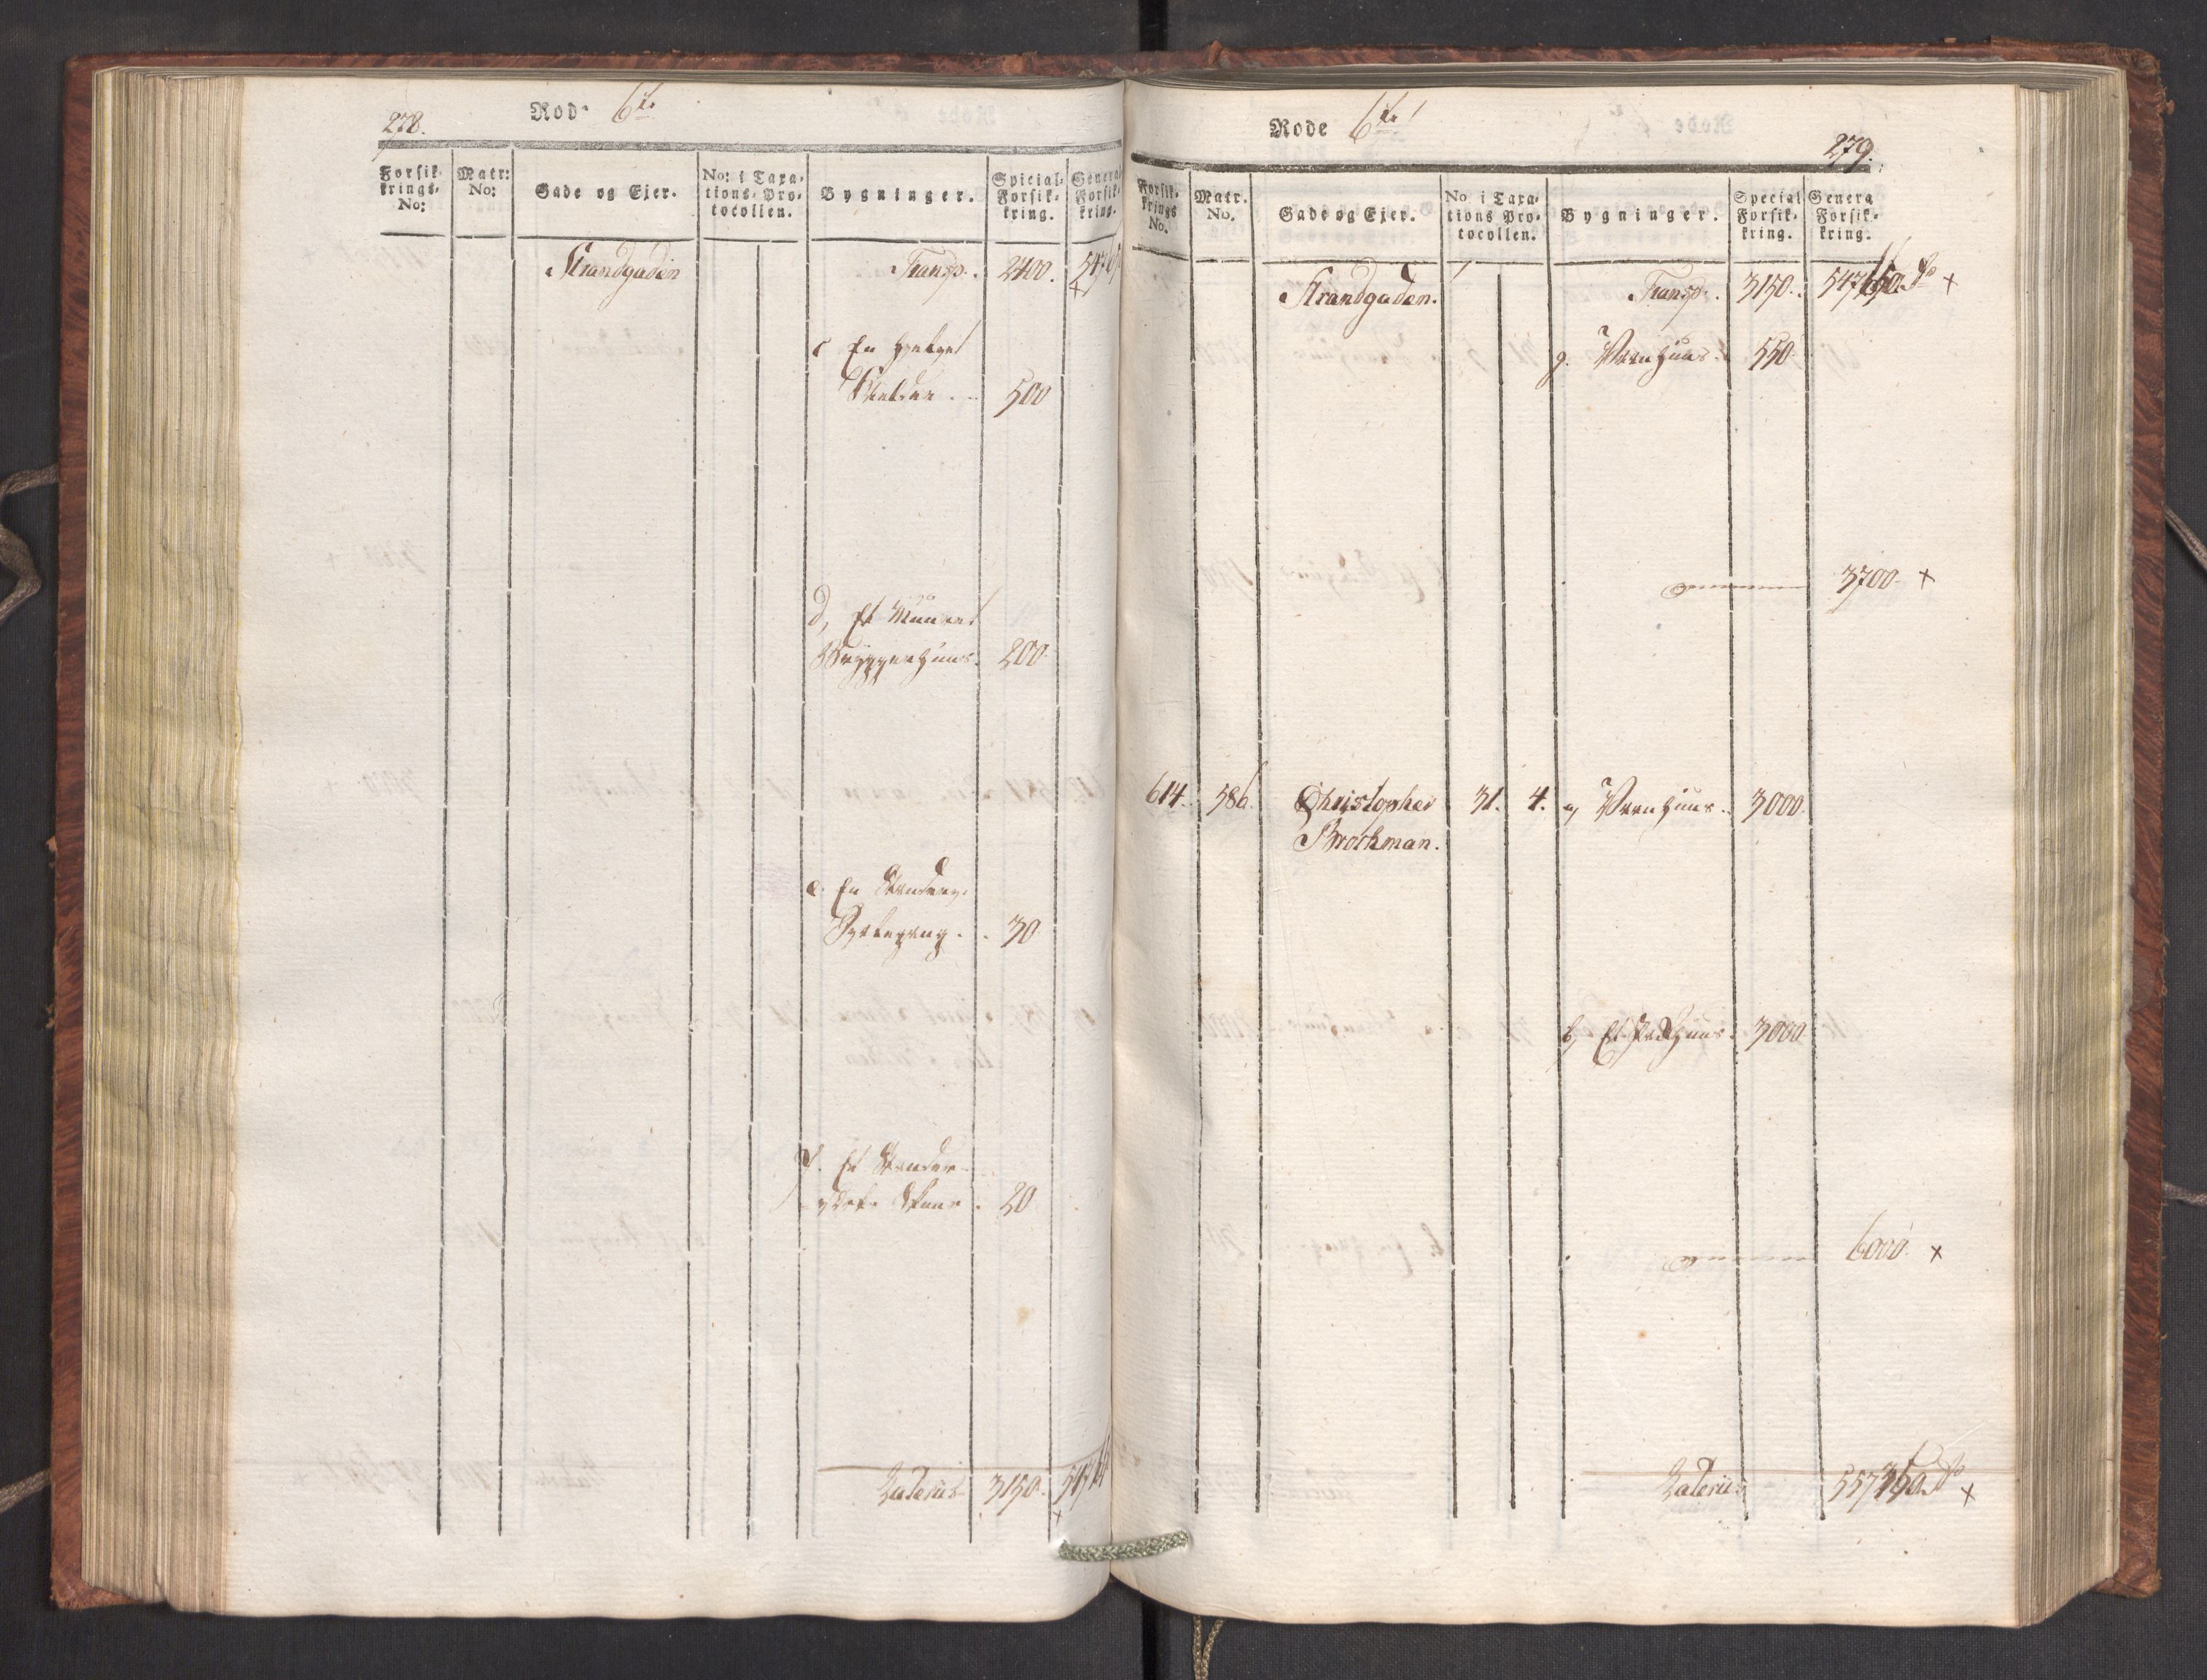 278.
Rode 6te
Forsik-
krings-
No:
Matr:
No:
Gade og Ejer.
No: i Taxa-
tions-Pro-
tocollen.
Bygninger.
Spicial-
Forsik-
kring.
General
Forsik-
kring.
Strandgaden
Transp. 2400.
c En
Kielder 500
d, Et Muuret
Bryggerhuus. 200.
e. En
30
f. Et
Skuur 20
Lateris 3150.
Rode 6te
279.
Forsik-
krings
No.
Matr.
No.
Gade og Ejer.
No i Taxa-
tions Pro-
tocollen.
Bygninger.
Special
Forsik-
kring.
Genera
Forsik-
kring.
Strandgaden. Transp. 3150. 547650 +
g. Vaanhuus. 550
3700 +
614. 586. Christopher 31. 4. a, Vaanhuus. 3000.
Brockman.
b, Et Huus. 3000
6000. +
Lateris 557350 +